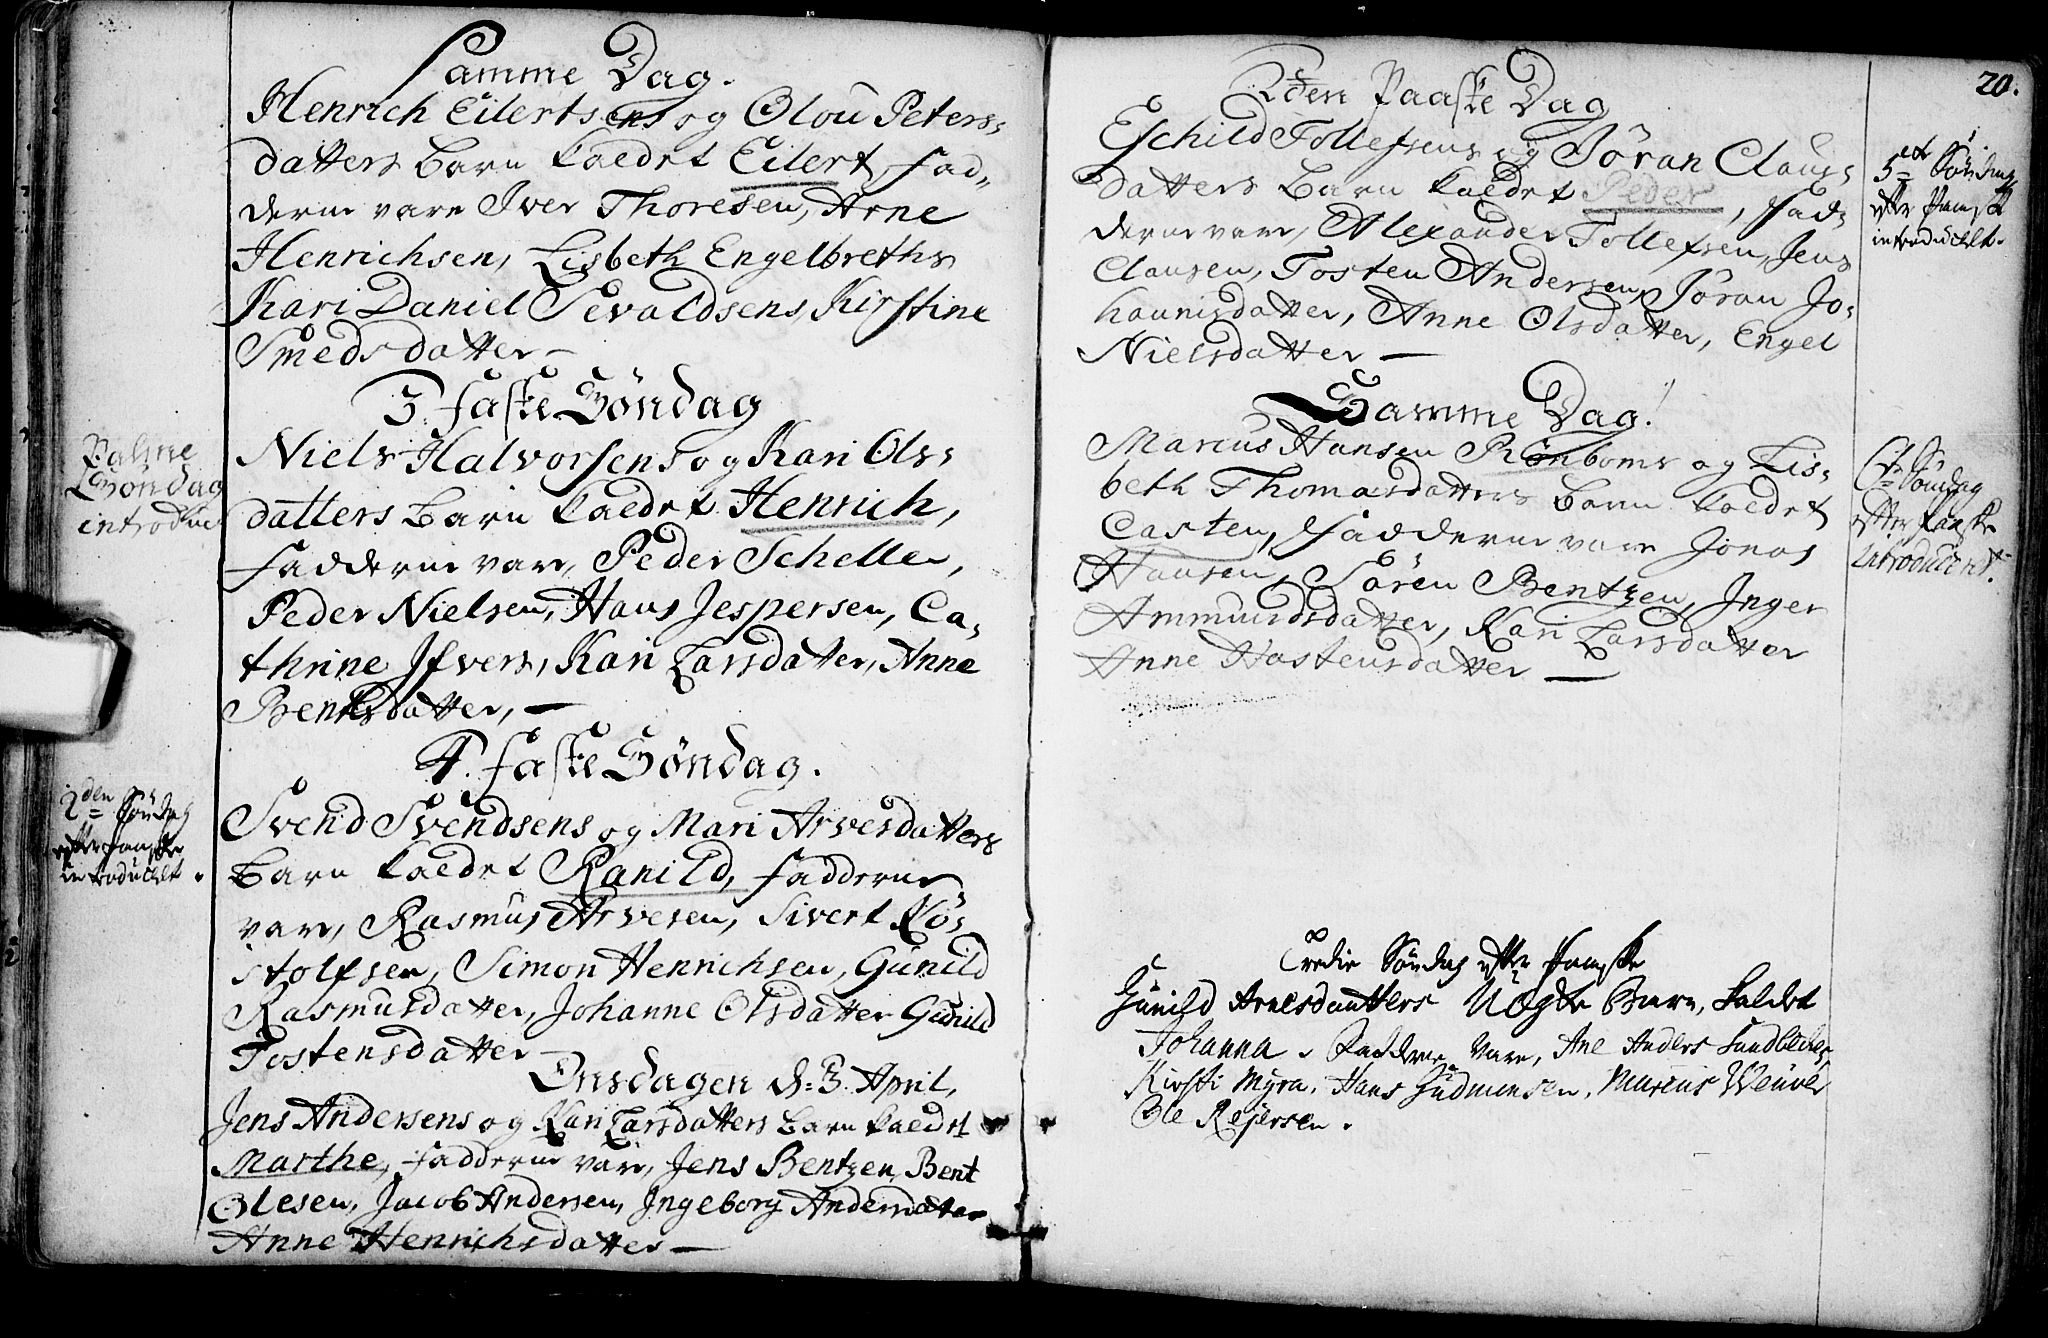 Samme Dag.
Henrich Eilertsens og Olou Peters-
datters Barn kaldet Eilert, Fad-
derne vare Iver Thoresen, Arne
Henrichsen, Lisbeth Engelbreths
Kari Daniel Sevaldsens, Kirstine
Smedsdatter -
3. Faste Söndag
Palme
Söndag
introdu
Niels Halvorsens og Kari Ols-
datters Barn kaldet Henrich,
Fadderne vare, Peder Scheller,
Peder Nielsen, Hans Jespersen, Ca-
thrine Ifvers, Kari Larsdatter, Anne
Bentsdatter, -
4. Faste Söndag.
2den Söndag
efter Paaske
introducert.
Svend Svendsens og Mari Arvesdatters
Barn kaldet Ranild, Fadderne
vare, Rasmus Arvesen, Sivert
Simon Henrichsen, Gunild
Rasmusdatter, Johanne Olsdatter Gunild
Tostensdatter
Onsdagen d: 3. April,
Jens Andersens og Kari Larsdatters Barn kaldet
Marthe, Fadderne vare, Jens Bentzen, Bent
Olesen, Jacob Andersen, Ingeborg Andersdatter
Anne Henrichsdatter -
20.
2den Paaske Dag
Eschild Tollefsens og Jöran Claus-
datters Barn kaldet Peder, Fad-
derne vare, Alexander Tollefsen, Jens
Clausen, Tosten Andersen, Jöran Jo-
hannisdatter, Anne Olsdatter, Engel
Nielsdatter -
5te Söndag
efter Paaske
introducert.
Samme Dag.
Marcus Hansen Rönboms og Lis-
beth Thomasdatters Barn kaldet
Casten, Fadderne vare Jonas
Hansen, Sören Bentzen, Inger
Ammundsdatter, Kari Larsdatter
Anne Hostensdatter -
6te Söndag
efter Paaske
Introducert.
Tredie Söndag efter Paaske
Gunild Arnesdautters Uægte Barn, kaldet
Johanna. Fadderne vare, Ane Anders
Kirsti Myra, Hans Gudmunsen, Marcus
Ole Rejersen.